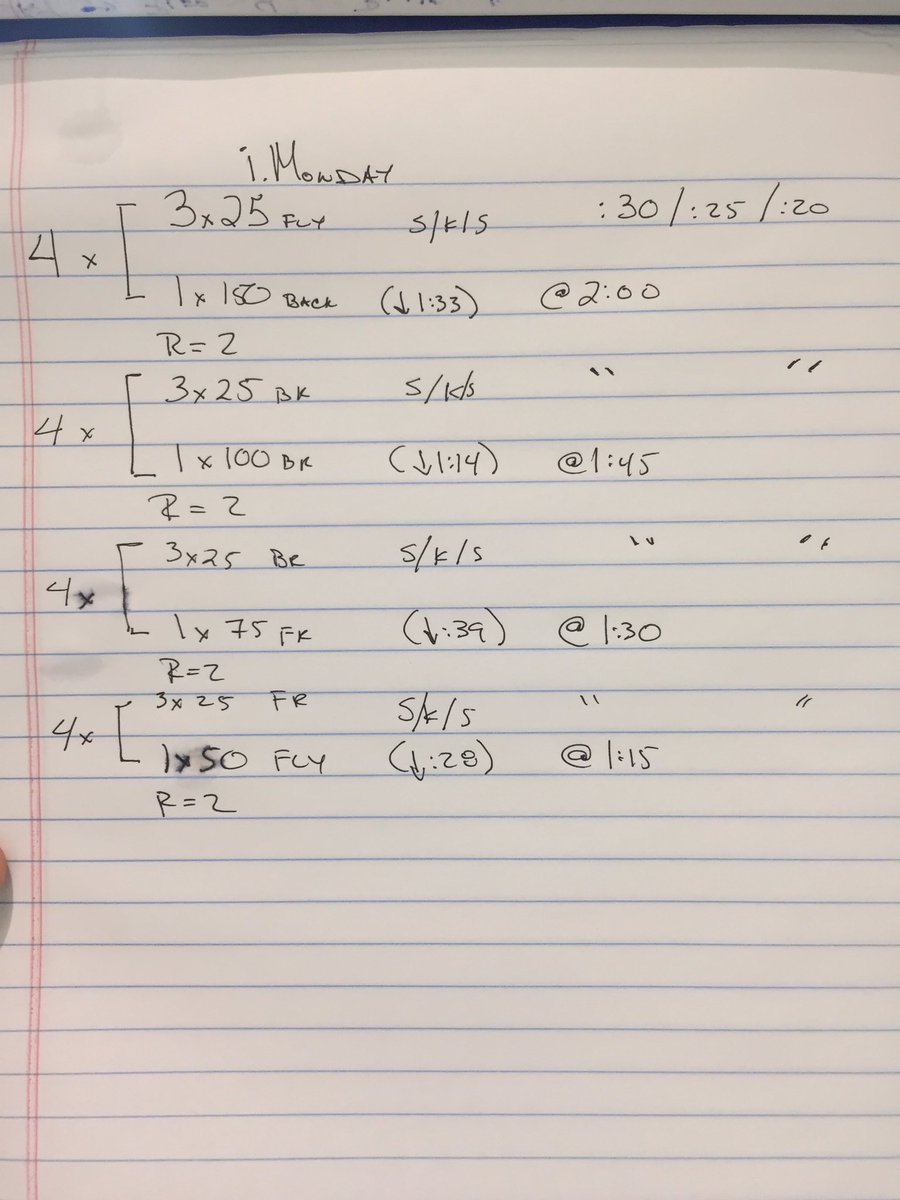 i.MONDAY
3x25 FLY S/K/S :30/:25/:20
4x
1x150 BACK (↓1:33) @2:00
R=2
3x25 BK S/K/S " "
4x
1x100 BR (↓1:14) @1:45
R=2
3x25 BR S/K/S " "
4x
1x75 FR (↓:39) @1:30
R=2
3x25 FR S/K/S " "
4x
1x50 FLY (↓:28) @1:15
R=2